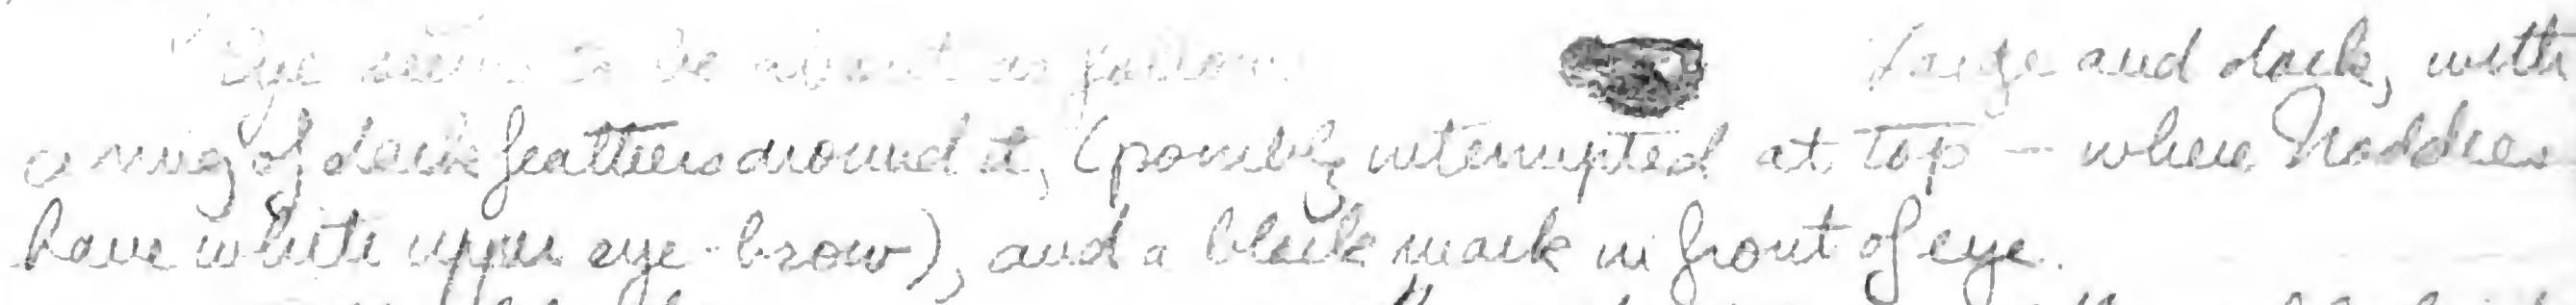 Eye seems to be about as follows. Large and dark, with
a ring of dark feathers around it, (possibly interrupted at top — where Noddies
have white upper eye-brow), and a black mark in front of eye.